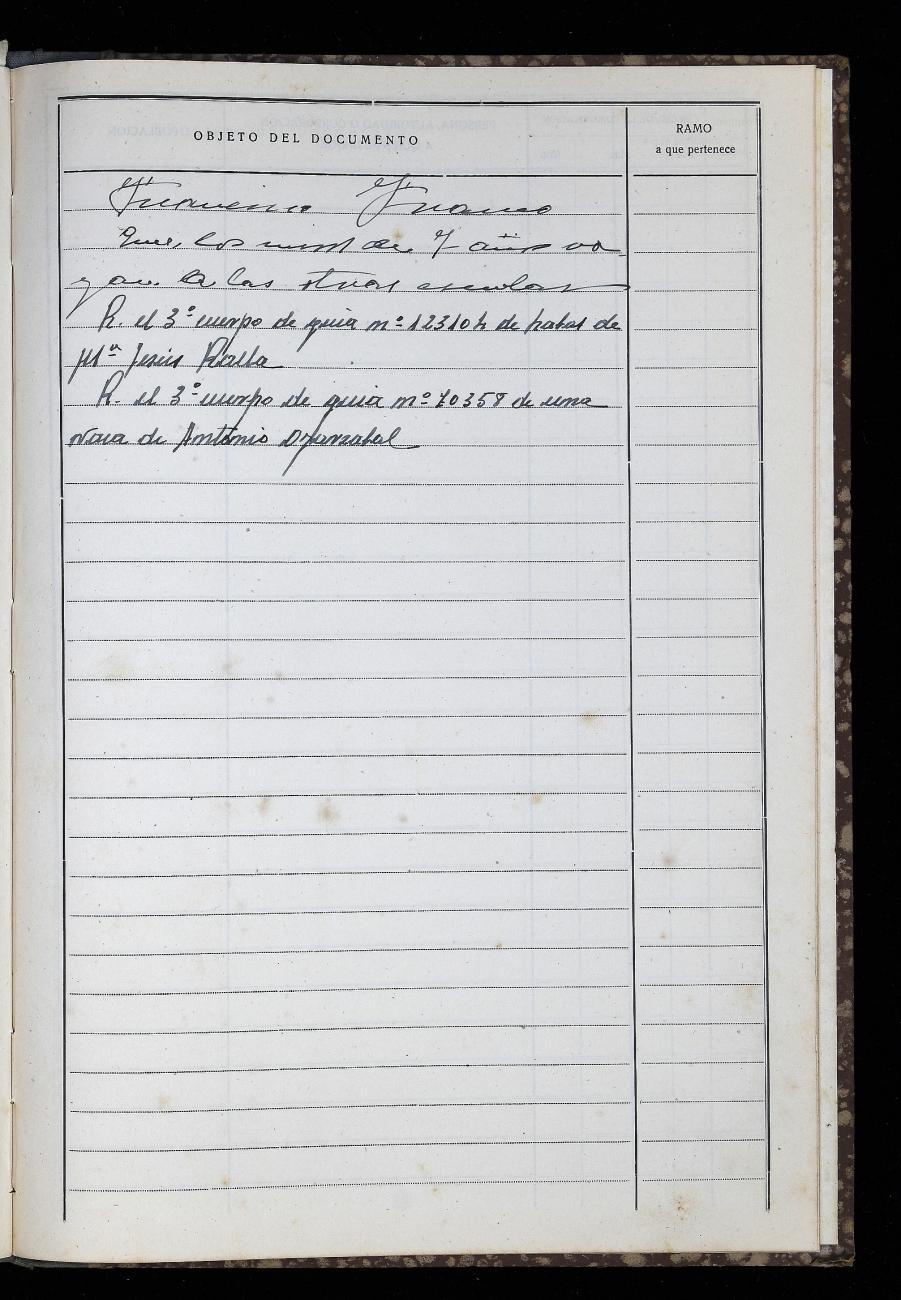 OBJETO DEL DOCUMENTO
RAMO
a que pertenece
Francisco Franco
Que los de 7 años va
yan a las otras escuelas
R. el 3º cuerpo de guia nº 12310 h de habas de
Mª Jesús Ralla
R. el 3º cuerpo de guia nº 10358 de una
vaca de Antonio Oyarzabal